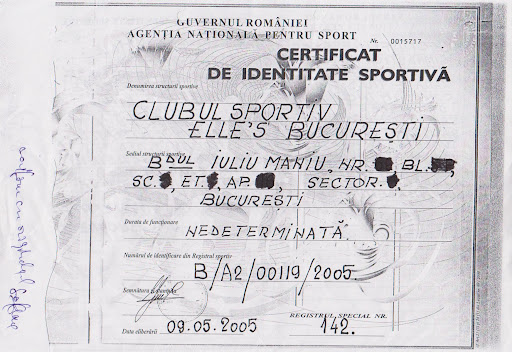 GUVERNUL ROMÂNIEI
AGENȚIA NAȚIONALĂ PENTRU SPORT
Nr. 0015717
CERTIFICAT
DE IDENTITATE SPORTIVĂ
Denumirea structurii sportive
CLUBUL SPORTIV
ELLE'S BUCUREȘTI
Sediul structurii sportive
BDUL IULIU MANIU, NR. BL.
SC. , ET. , AP. , SECTOR.
BUCURESTI
Durata de funcționare
NEDETERMINATĂ.
Numărul de identificare din Registrul sportiv
B/A2/00119/2005.
Semnătura
REGISTRUL SPECIAL NR.
Data eliberării 09.05.2005 142.